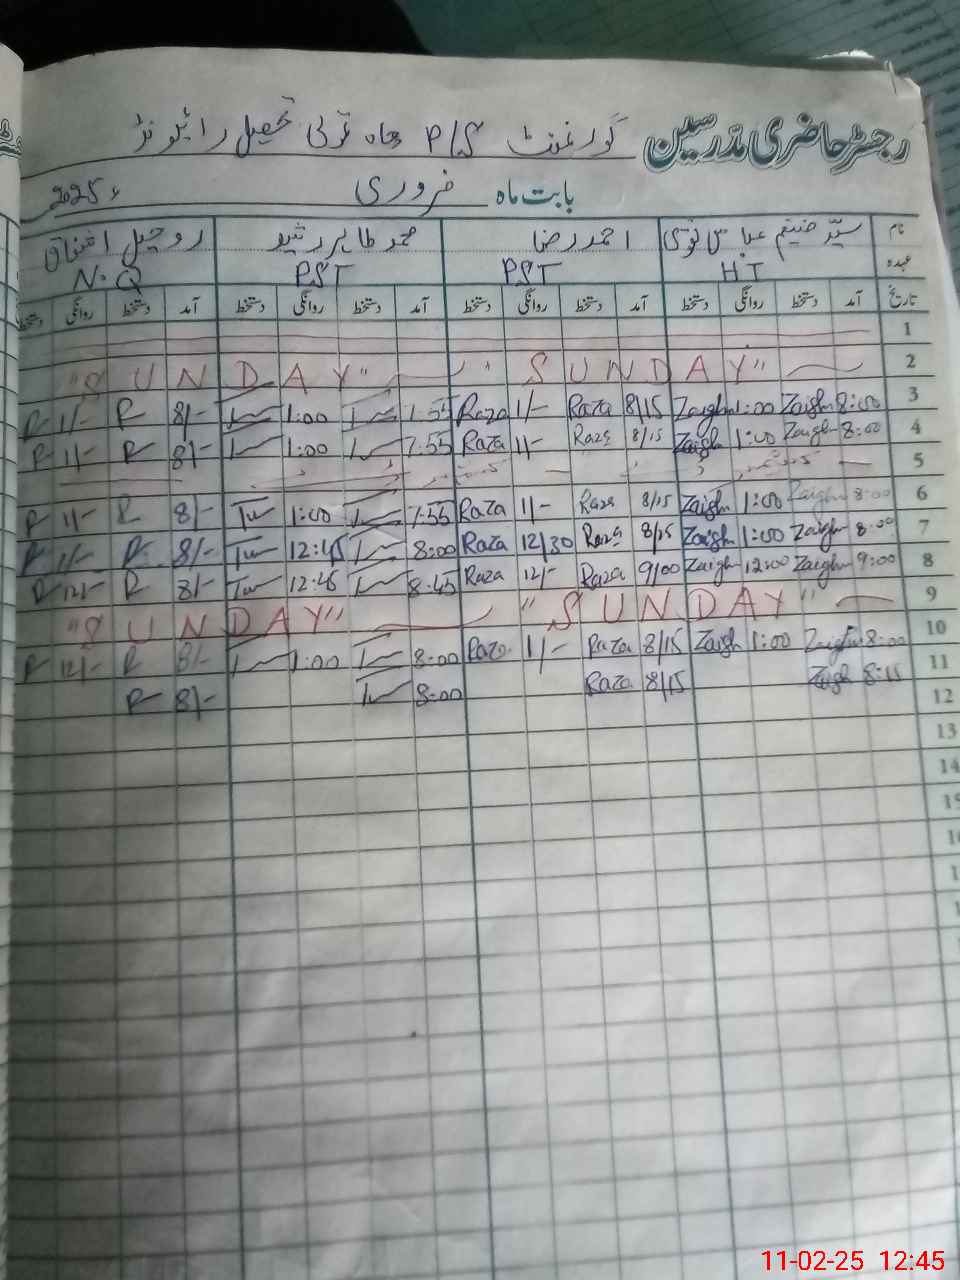 رجسٹر حاضری مدرسین گورنمنٹ P/S چاہ تحصیل رائیونڈ
بابت ماہ فروری 2025ء
نام سید ضیغم عباس نقوی احمد رضا محمد طاہر رشید روحیل اشفاق
عہدہ H.T PST PST N.Q
تاریخ آمد دستخط روانگی دستخط آمد دستخط روانگی دستخط آمد دستخط روانگی دستخط آمد دستخط روانگی دستخط
1
2 "SUNDAY" "SUNDAY"
3 8:00 Zaigh 1:00 Zaigh 8/15 Raza 1/- Raza 7:55 1:00 8/- R 1/- R
4 8:00 Zaigh 1:00 Zaigh 8/15 Raza 1/- Raza 7:55 1:00 8/- R 1/- R
5
6 8:00 Zaigh 1:00 Zaigh 8/15 Raza 1/- Raza 7:55 1:00 8/- R 1/- R
7 8:00 Zaigh 1:00 Zaigh 8/15 Raza 12/30 Raza 8:00 12:45 8/- R 1/- R
8 9:00 Zaigh 12:00 Zaigh 9/00 Raza 12/- Raza 8:45 12:45 8/- R 12/- R
9 "SUNDAY" "SUNDAY"
10 8:00 Zaigh 1:00 Zaigh 8/15 Raza 1/- Raza 8:00 1:00 8/- R 12/- R
11 8:15 Zaigh 8/15 Raza 8:00 8/- R
12
13
14
15
11-02-25 12:45